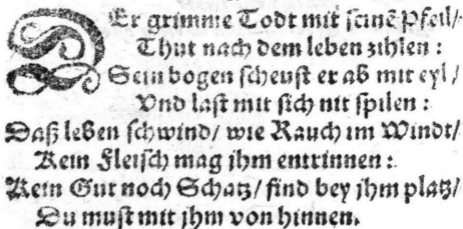 DEr grimme Todt mit seinē Pfeil/
Thut nach dem leben zihlen:
Sein bogen scheust er ab mit eyl/
Vnd last mit sich nit spilen:
Daß leben schwind/ wie Rauch im Windt/
Kein Fleisch mag jhm entrinnen:
Kein Gut noch Schatz/ find bey jhm platz/
Du must mit jhm von hinnen.